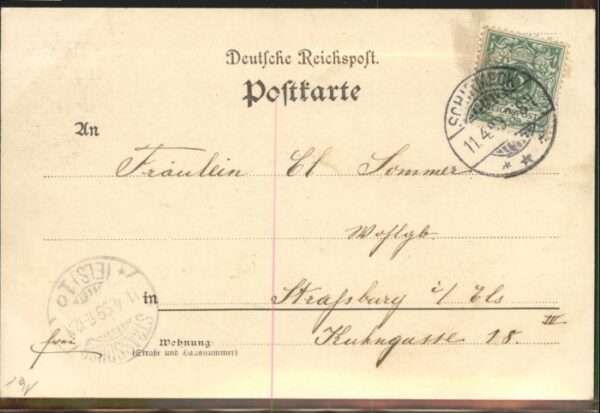 Deutsche Reichspost.
Postkarte
SCHIRMECK
11.4.99
An
Fräulein El Sommer
Wohlgb.
in Straßburg i/Els
Kuhngasse 18 III
Wohnung
(Straße und Hausnummer)
frei
STRASSBURG
(ELS) 1
11.4.99